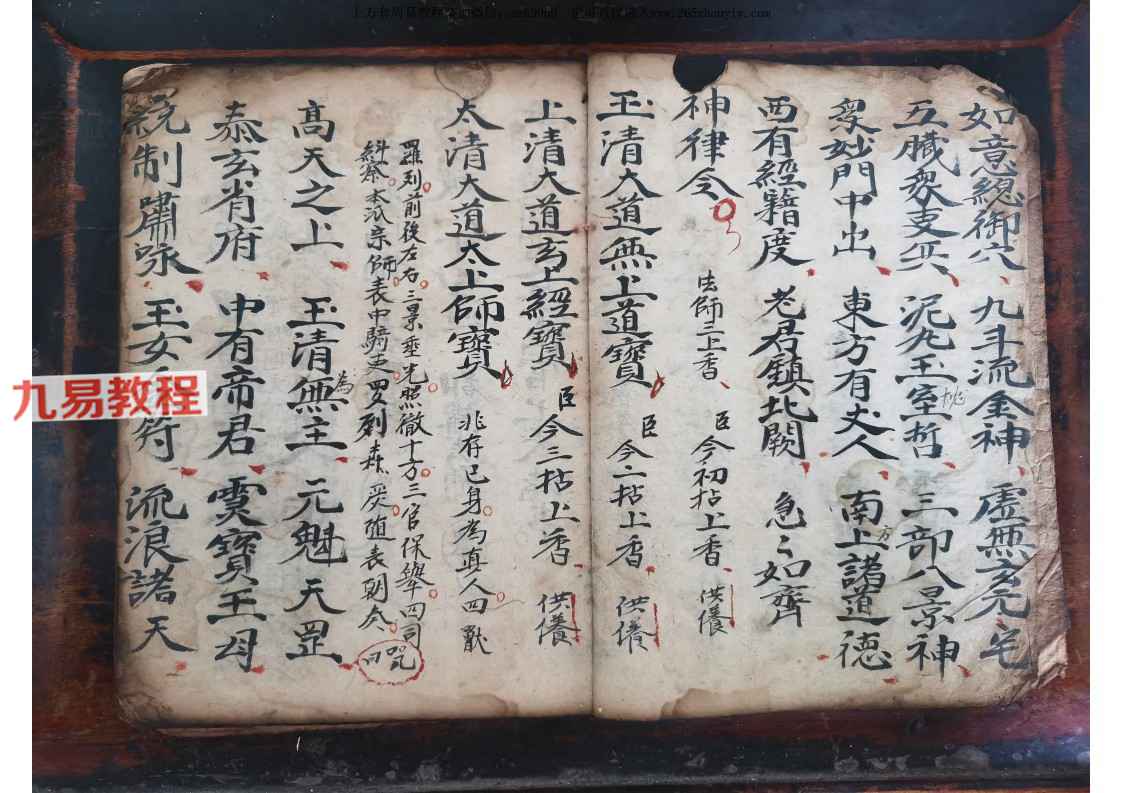 如意總御六 九斗流金神 虛無玄元宅
五臟眾支兵 泥丸玉室哲 三部八景神
眾妙門中出 東方有丈人 南方上諸道德
西有經籍度 老君鎮北闕 急〻如齊
神律令 法師三上香 臣今初拈上香 供養
玉清大道無上道寶 臣今二拈上香 供養
上清大道玄上經寶 臣今三拈上香 供養
太清大道太上師寶 兆存已身為真人四獸
羅列前後左右三景垂光照徹十方三官保舉四司
糾察本派宗師表中騎吏羅列森 隨表朝
咒曰
高天之上 玉清為無主 元魁天罡
泰玄省府 中有帝君 靈寶王母
統制嘯詠 玉女 符 流浪諸天
九易教程